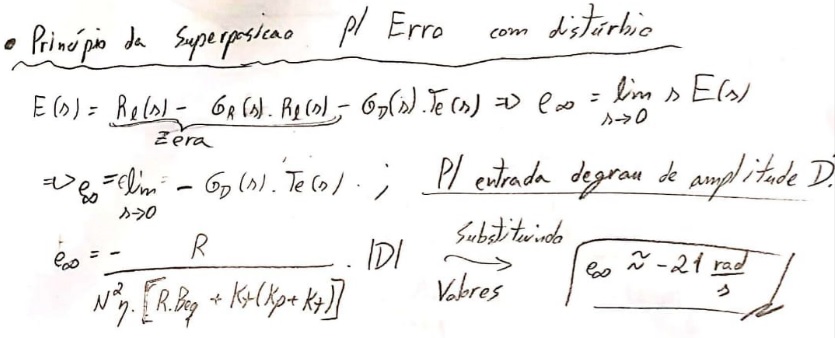 • Princípio da Superposicao p/ Erro com distúrbio
E(s) = Rl(s) - GR(s). Rl(s) - GD(s).Te(s) => e∞ = lim s E(s)
s→0
Zera
=> e∞ = lim - GD(s). Te(s) . ; P/ entrada degrau de amplitude D.
s→0
e∞ = - R / N²η. [R.Beq + Kt(Kp + Kt)] . |D| Substituindo Valores → e∞ ≈ -21 rad/s